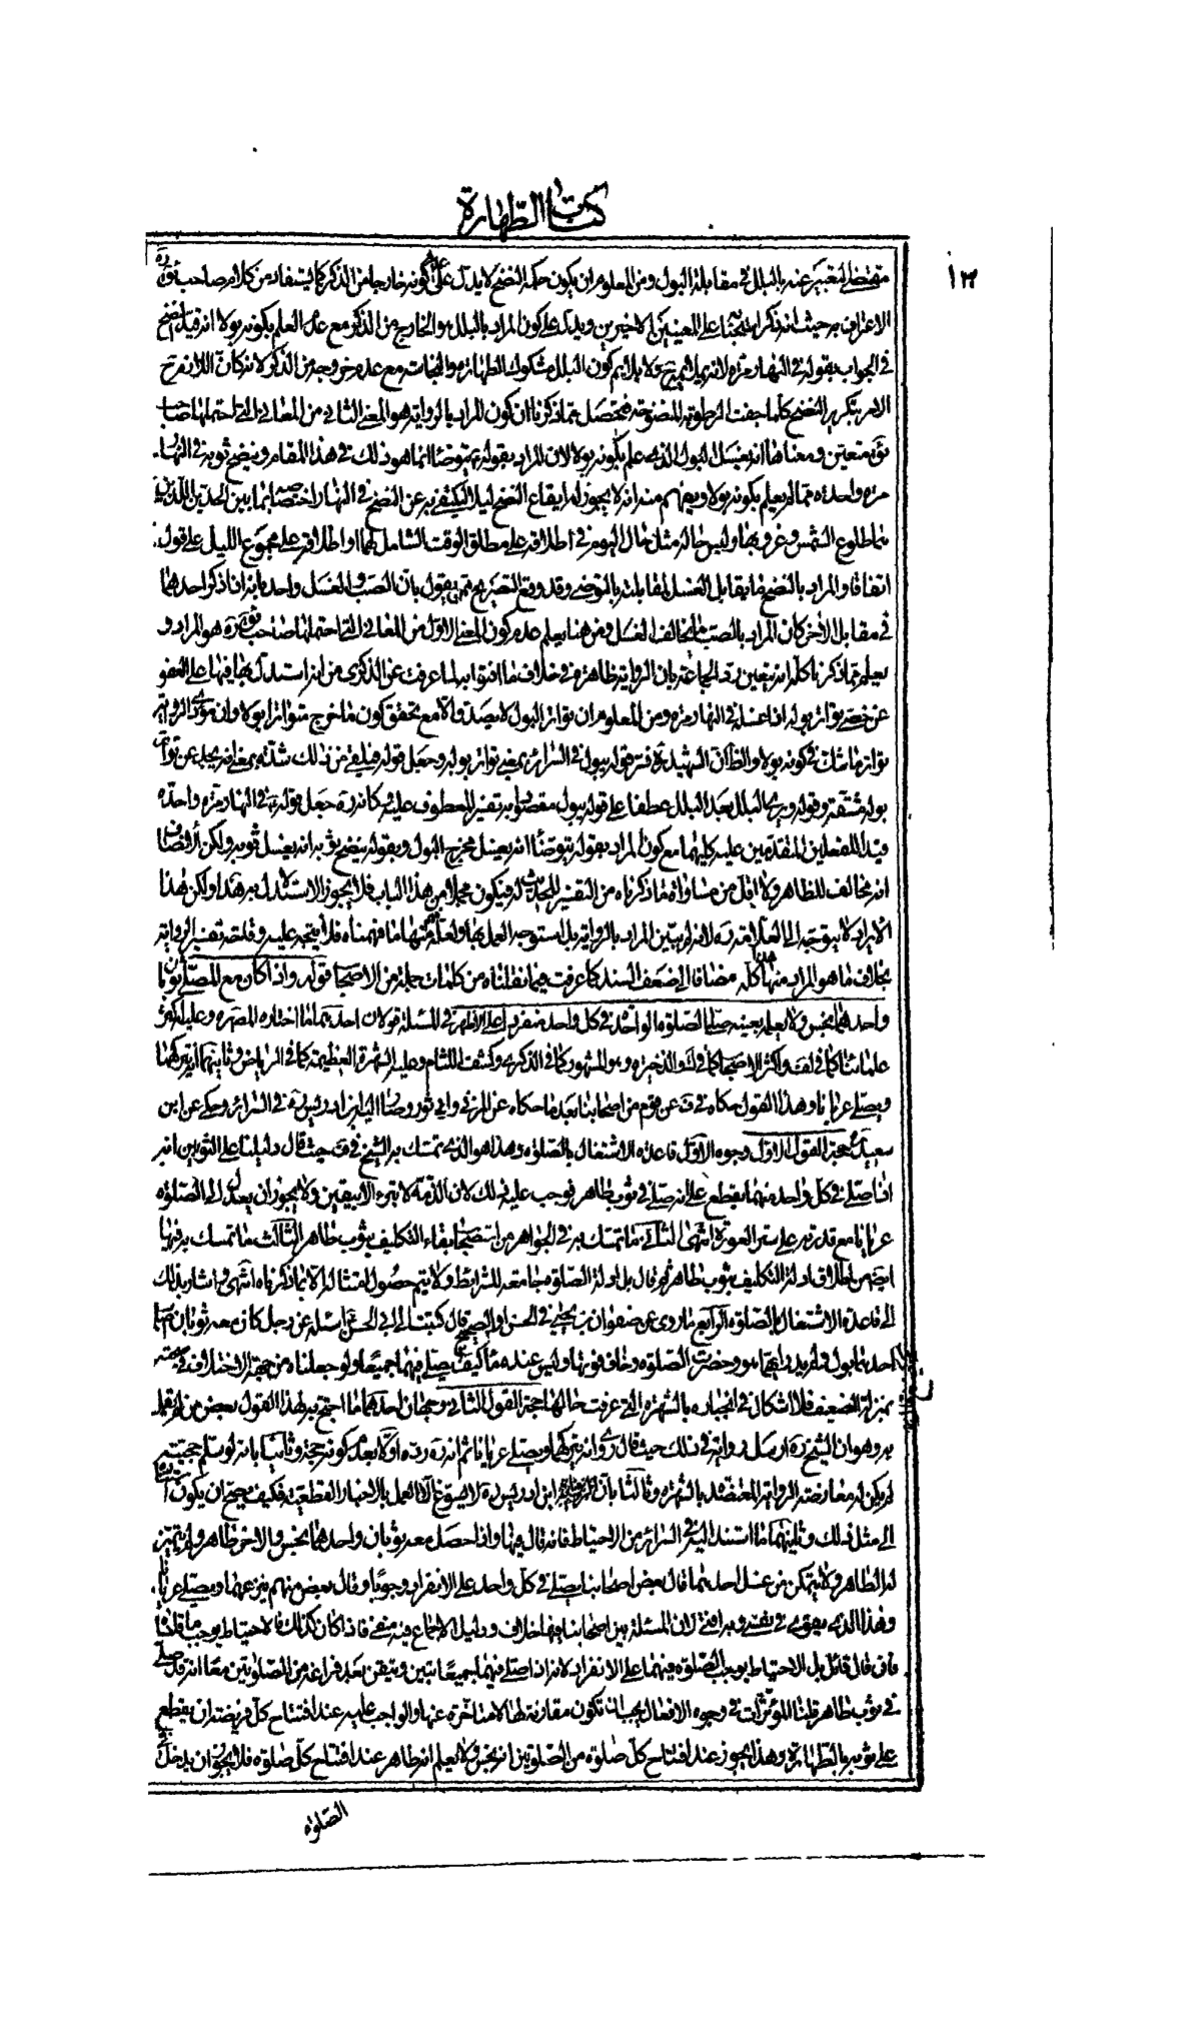 كتاب الطهارة
١٣
مقتضى التعبير عنه بالبلل في مقابلة البول ومن المعلوم ان يكون حكمة النضح لا يدل على كونه خارجا من الذكر كما يستفاد من كلام صاحب ئق ره
الاعتراف به حيث انه ذكر على المعنيين الاخيرين ويدل على كون المراد بالبلل هو الخارج من الذكر مع عدم العلم بكونه بولا انه قيد النضح
في الجواب بقوله في النهار مرة لانه كون البلل مشكوك الطهارة والنجاسة مع عدم خروجه من الذكر لا
الامر بتكرير النضح كلما جفت الرطوبة المنضوحة فتحصل مما ذكرنا ان كون المراد بالرواية هو المعنى الثاني من المعاني التي احتملها صاحب
ئق متعين ومعناها انه يغسل البول الذي علم بكونه بولا لان المراد بقوله يتوضأ انما هو ذلك في هذا المقام وينضح ثوبه في النهار
مرة واحدة مما لم يعلم بكونه بولا ويفهم منه انه لا يجوز له ايقاع النضح ليلا ليكتفي به عن النضح في النهار اختصاصه بما بين الحدين اللذين
هما طلوع الشمس وغروبها وليس حاله مثل حال اليوم في اطلاقه على مطلق الوقت الشامل لهما او اطلاقه على مجموع الليل على قول
اتفاقا والمراد بالنضح ما يقابل الغسل لمقابلته بالتوضي وقد وقع التصريح ممن يقول بان الصب والغسل واحد بانه اذا ذكر احدهما
في مقابل الاخر كان المراد بالصب ما يخالف الغسل ومن هنا يعلم عدم كون المعنى الاول من المعاني التي احتملها صاحب ئق ره هو المراد و
يعلم مما ذكرنا كله انه يتعين رد الجماعة بان الرواية ظاهرة في خلاف ما افتوا به لما عرفت عن الذكرى من انه استدل بها فيها على العفو
عن خصي يتواتر بوله اذا غسله في النهار مرة ومن المعلوم ان تواتر البول لا يصدق الا مع تحقق كون ما خرج متواترا بولا وان مؤدى الرواية
تواتر ما شك في كونه بولا والظاهر ان الشهيد ره فسر قوله يبول في السرائر بمعنى تواتر بوله وجعل قوله فيلقى من ذلك شدة بمعنى انه يجد عن تواتر
بوله مشقة وقوله ويرى البلل بعد البلل عطفا على قوله يبول مقصودا به تفسير المعطوف عليه وكانه ره جعل قوله في النهار مرة واحدة
قيدا للفعلين المتقدمين عليه كليهما مع كون المراد بقوله يتوضأ انه يغسل مخرج البول وبقوله ينضح ثوبه انه يغسل ثوبه ولكن
انه مخالف للظاهر ولا اقل من مساواة ما ذكرناه من التفسير للحديث له فيكون مجملا من هذا الباب فلا يجوز الاستدلال به هذا ولكن هذا
الايراد لا يتوجه الى العلامة ره لانه لم يبين المراد بالرواية بل استوجه العمل بها ولعله فهم منها ما فهمناه فلا يتجه عليه وقلت تفسير الرواية
بخلاف ما هو المراد منها هذا كله مضافا الى ضعف السند كما عرفت فيما نقلناه من كلمات جملة من الاصحاب قوله واذا كان مع المصلي ثوبان
واحدهما نجس ولا يعلمه بعينه صلى الصلوة الواحدة في كل واحد منفردا على الاظهر في المسئلة قولان احدهما ما اختاره المصره وعليه اكثر
علمائنا كما في لف واكثر الاصحاب كما في ك والذخيرة وهو المشهور كما في الذكرى وكشف اللثام وعليه الشهرة العظيمة كما في الرياض وثانيهما انه يتركهما
ويصلي عريانا وهذا القول حكاه في ف عن قوم من اصحابنا بعد ما حكاه عن المزني وابي ثور وصار اليه ابن ادريس ره في السرائر وحكى عن ابن
سعيد حجة القول الاول وجوه الاول قاعدة الاشتغال بالصلوة وهذا هو الذي تمسك به الشيخ في ف حيث قال دليلنا على الثوبين انه
اذا صلى في كل واحد منهما يقطع على انه صلى في ثوب طاهر فوجب عليه ذلك لان الذمة لا تبرء الا بيقين ولا يجوز ان يعدل الى الصلوة
عريانا مع قدرته على ستر العورة انتهى الثاني ما تمسك به في الجواهر من استصحاب بقاء التكليف بثوب طاهر الثالث ما تمسك به فيها
ايضا من اطلاق ادلة التكليف بثوب طاهر ثم قال بل ادلة الصلوة جامعة للشرائط ولا يتم حصول امتثاله الا بما ذكرناه انتهى واشار بذلك
الى قاعدة الاشتغال بالصلوة الرابع ما روى عن صفوان بن يحيى في الحسن او الصحيح قال كتبت الى ابي الحسن ع اسئله عن رجل كان معه ثوبان فاصاب
احدهما بول فلم يدر ايهما هو وحضرت الصلوة وخاف فوتها وليس عنده ماء كيف يصنع قال يصلي فيهما جميعا ولو جعلناه من جهة الاختلاف في صحته
بمنزلة الضعيف فلا اشكال في انجباره بالشهرة التي عرفت حالها حجة القول الثاني وجهان احدهما ما احتج به لهذا القول بعض من لم يقل
به وهو ان الشيخ ره ارسل رواية في ذلك حيث قال روي انه يتركهما ويصلي عريانا ثم انه ره رده اولا بعدم كونه حجة وثانيا بانه لو سلم حجيته
لم يكن له معارضة الرواية المعتضدة بالشهرة وثالثا بان ابن ادريس ره لا يسوغ الا العمل بالاخبار القطعية فكيف يصح ان يكون استناده
الى مثل ذلك وثانيهما ما استند اليه في السرائر من الاحتياط فانه قال فيها واذا حصل معه ثوبان واحدهما نجس والاخر طاهر ولم يتميز
له الطاهر ولا يتمكن من غسل احدهما قال بعض اصحابنا يصلي في كل واحد على الانفراد وجوبا وقال بعض منهم ينزعهما ويصلي عريانا
وهذا الذي يقوى في نفسي وبه افتي لان المسئلة بين اصحابنا فيها خلاف ودليل الاجماع فيه منفي فاذا كان كذلك فالاحتياط يوجب ما قلناه
فان قال قائل بل الاحتياط يوجب الصلوة فيهما على الانفراد لانه اذا صلى فيهما جميعا تبين وتيقن بعد فراغه من الصلوتين معا انه قد صلى
في ثوب طاهر قلنا المؤثرات في وجوه الافعال يجب ان تكون مقارنة لها لا متأخرة عنها والواجب عليه عند افتتاح كل فريضة ان يقطع
على ثوبه بالطهارة وهذا يجوز عند افتتاح كل صلوة من الصلوتين انه نجس ولا يعلم انه طاهر عند افتتاح كل صلوة فلا يجوز ان يدخل في
الصلوة